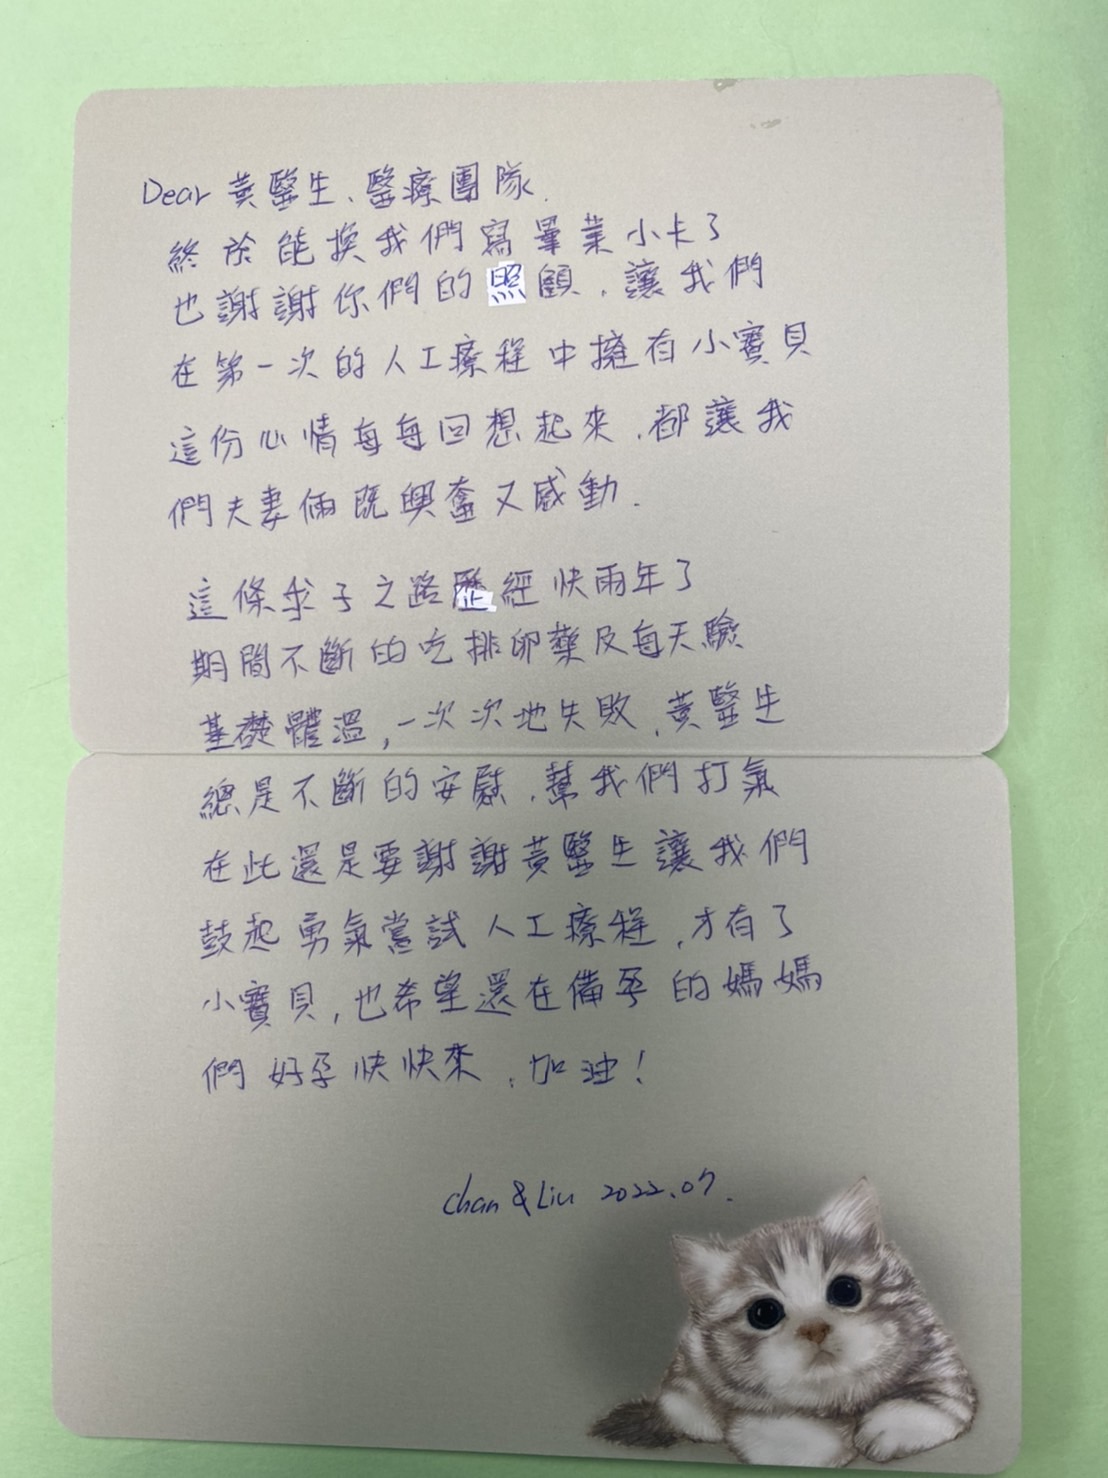 Dear 黃醫生、醫療團隊.
終於能換我們寫畢業小卡了
也謝謝你們的照顧，讓我們
在第一次的人工療程中擁有小寶貝
這份心情每每回想起來，都讓我
們夫妻倆既興奮又感動.
這條求子之路歷經快兩年了
期間不斷的吃排卵藥及每天驗
基礎體溫，一次次地失敗，黃醫生
總是不斷的安慰，幫我們打氣
在此還是要謝謝黃醫生讓我們
鼓起勇氣嘗試人工療程，才有了
小寶貝，也希望還在備孕的媽媽
們好孕快快來，加油！
Chan & Liu 2022.07.